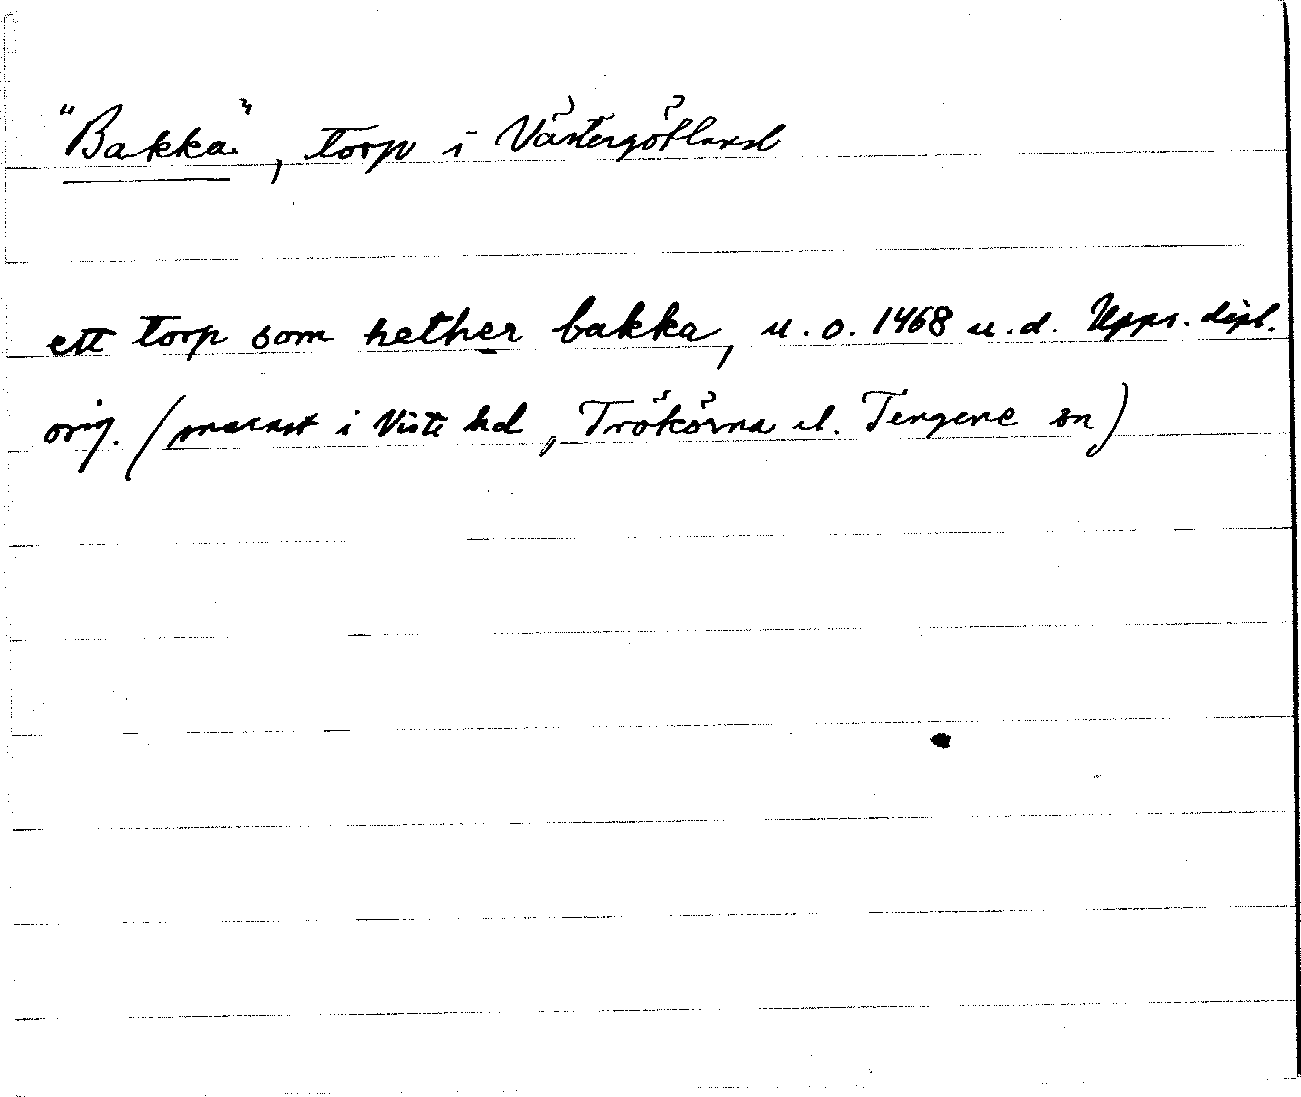 "Bakka", torp i Västergötland
ett torp som hether bakka, u. o. 1468 u. d. Upps. dipl.
orig. (snarast i Viste hd, Trökörna el. Tengene sn)